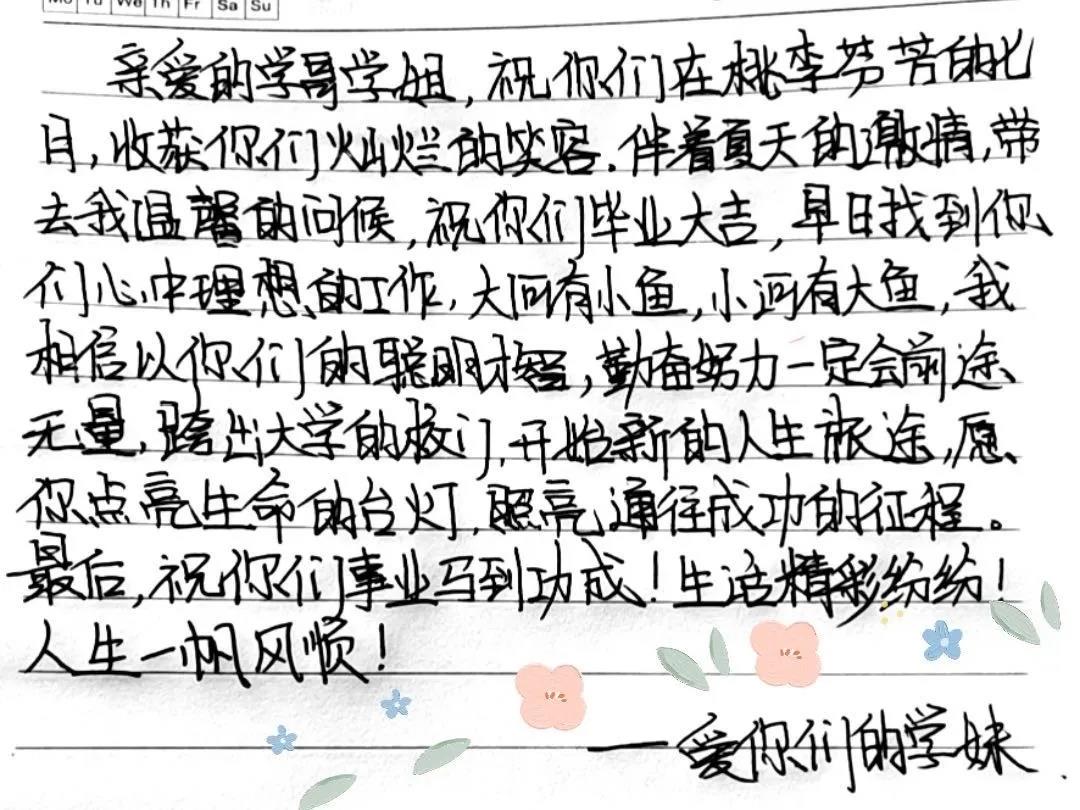 Mo Tu We Th Fr Sa Su
亲爱的学哥学姐，祝你们在桃李芬芳的七
月，收获你们灿烂的笑容.伴着夏天的激情,带
去我温馨的问候，祝你们毕业大吉，早日找到你
们心中理想的工作，大河有小鱼，小河有大鱼，我
相信以你们的聪明才智，勤奋努力一定会前途
无量，跨出大学的校门，开始新的人生旅途，愿
你点亮生命的台灯，照亮通往成功的征程。
最后，祝你们事业马到功成！生活精彩纷纷！
人生一帆风顺！
——爱你们的学妹.